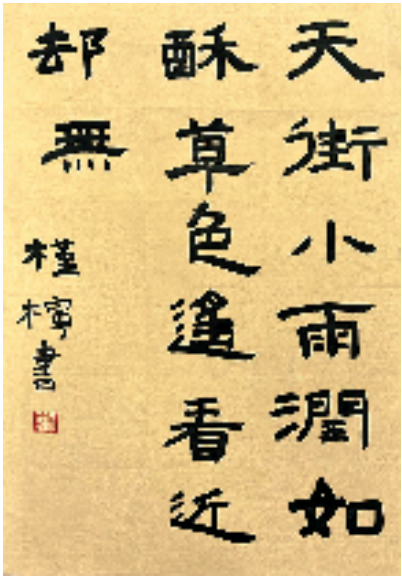 天街小雨潤如
酥草色遙看近
却無
槿檸書